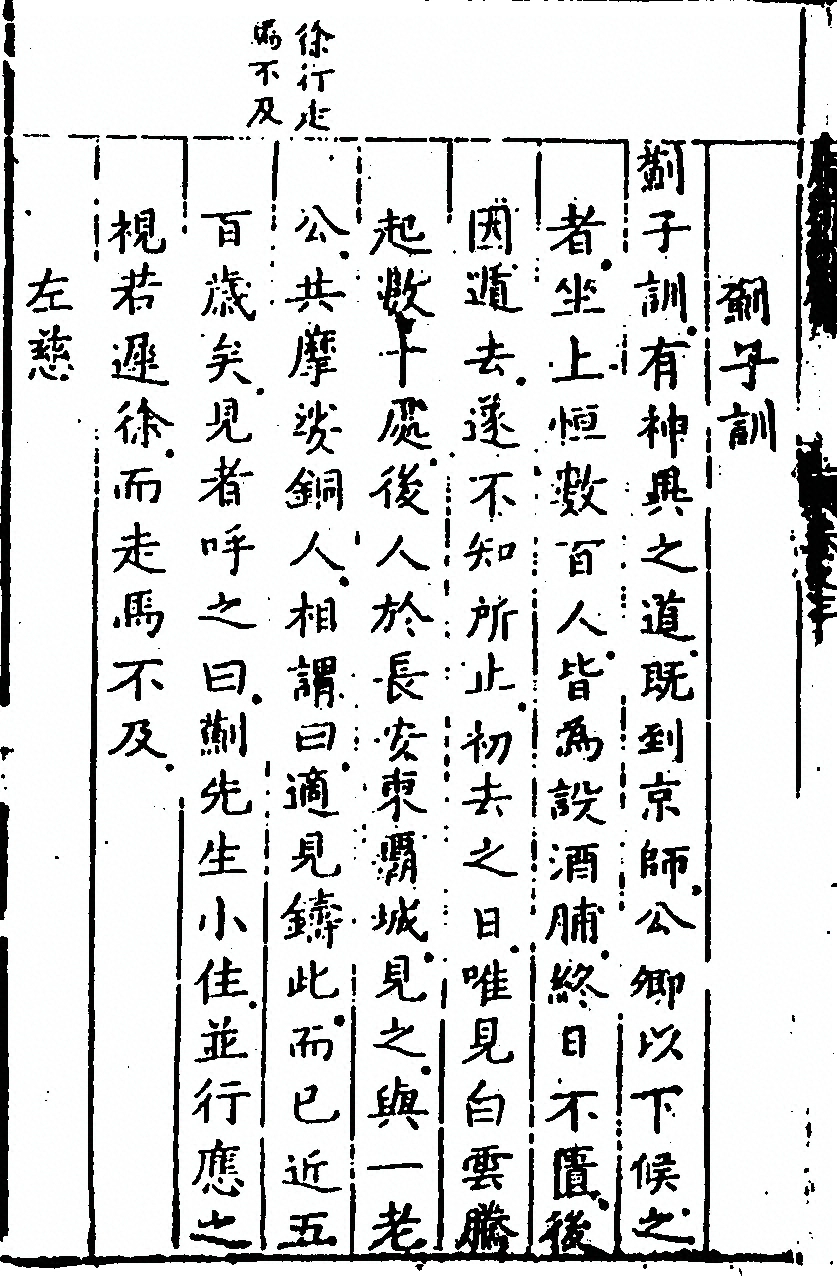 徐行走
馬不及
薊子訓
薊子訓有神異之道既到京師公卿以下候之
者坐上恒數百人皆為設酒脯終日不匱後
因遁去遂不知所止初去之日唯見白雲騰
起數十處後人於長安東霸城見之與一老
公共摩娑銅人相謂曰適見鑄此而已近五
百歲矣見者呼之曰薊先生小住並行應之
視若遲徐而走馬不及
左慈